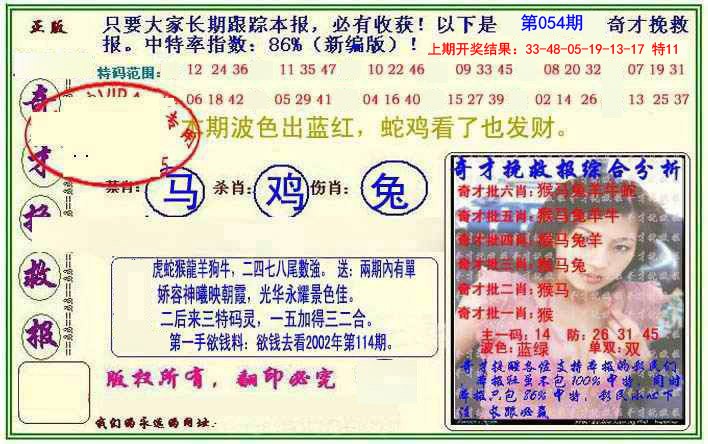 正版
只要大家长期跟踪本报，必有收获！以下是 第054期 奇才挽救
报。中特率指数：86%（新编版）！ 上期开奖结果：33-48-05-19-13-17 特11
特码范围： 12 24 36 11 35 47 10 22 46 09 33 45 08 20 32 07 19 31
06 18 42 05 29 41 04 16 40 15 27 39 02 14 26 13 25 37
专用
本期波色出蓝红，蛇鸡看了也发财。
禁肖：马 杀肖：鸡 伤肖：兔
虎蛇猴龍羊狗牛，二四七八尾數強。 送：兩期內有單
娇容神曦映朝霞，光华永耀景色佳。
二后来三特码灵，一五加得三二合。
第一手欲钱料：欲钱去看2002年第114期。
版权所有，翻印必究
我们的永远的网址：
奇才
救报
奇才挽救报综合分析
奇才批六肖：猴马兔羊牛蛇
奇才批五肖：猴马兔羊牛
奇才批四肖：猴马兔羊
奇才批三肖：猴马兔
奇才批二肖：猴马
奇才批一肖：猴
主一码：14 防：26 31 45
波色：蓝绿 单双：双
奇才挽救各位支持本报的彩民们
本报虽不包100%中特，同时
本报只包86%中特，彩民小心下
注，长跟必赢